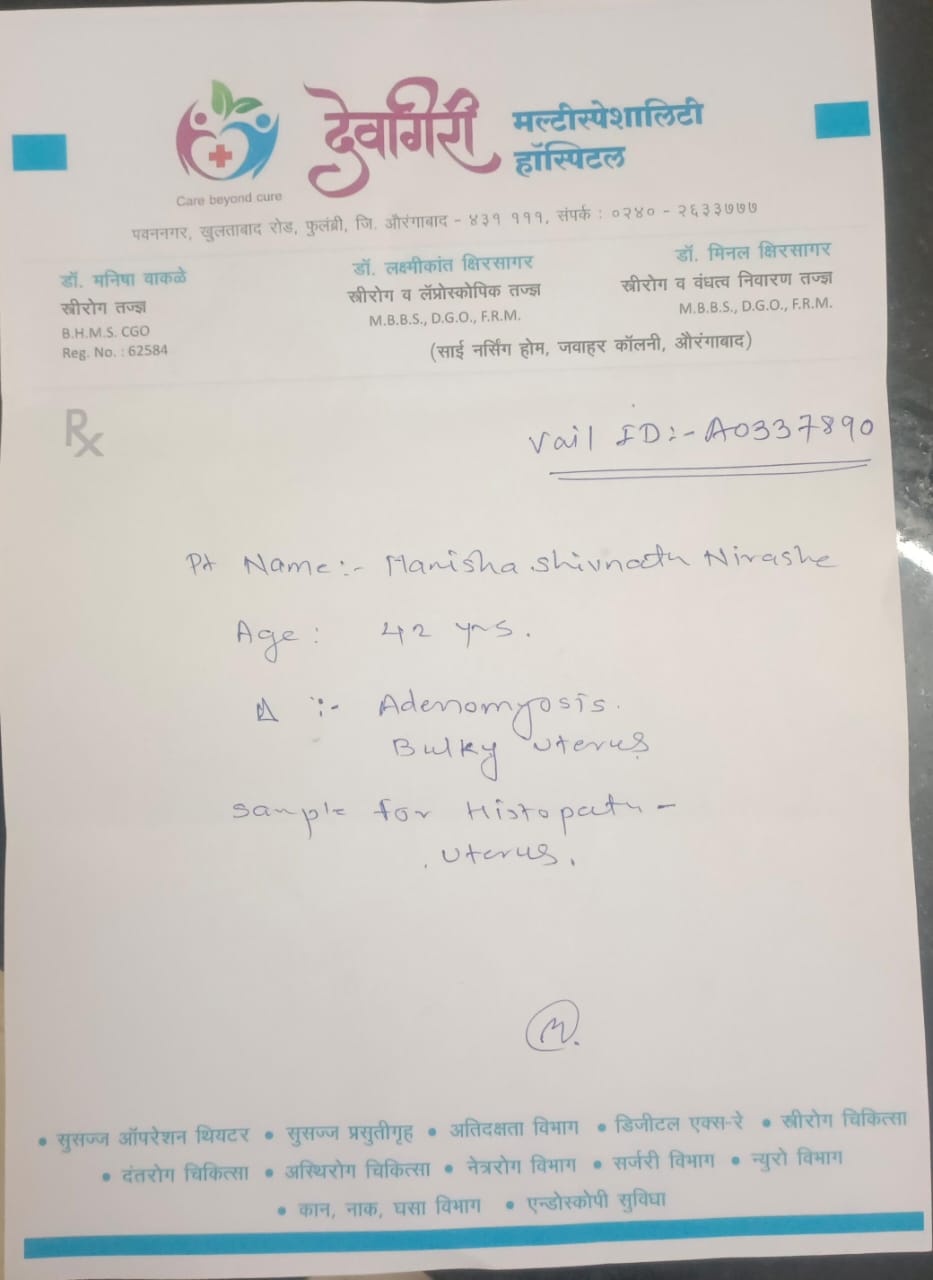 देवगिरी मल्टीस्पेशालिटी हॉस्पिटल
Care beyond cure
पवननगर, खुलताबाद रोड, फुलंब्री, जि. औरंगाबाद - ४३१ १११, संपर्क : ०२४० - २६३३७७७
डॉ. मनिषा वाकळे
स्त्रीरोग तज्ज्ञ
B.H.M.S. CGO
Reg. No. : 62584
डॉ. लक्ष्मीकांत क्षिरसागर
स्त्रीरोग व लॅप्रोस्कोपिक तज्ज्ञ
M.B.B.S., D.G.O., F.R.M.
डॉ. मिनल क्षिरसागर
स्त्रीरोग व वंधत्व निवारण तज्ज्ञ
M.B.B.S., D.G.O., F.R.M.
(साई नर्सिंग होम, जवाहर कॉलनी, औरंगाबाद)
Rx
Vail ID:- A0337890
Pt Name:- Manisha Shivnath Nirashe
Age: 42 yrs.
Δ :- Adenomyosis.
Bulky Uterus
Sample for Histopath -
Uterus.
M.
• सुसज्ज ऑपरेशन थियटर • सुसज्ज प्रसुतीगृह • अतिदक्षता विभाग • डिजीटल एक्स-रे • स्त्रीरोग चिकित्सा
• दंतरोग चिकित्सा • अस्थिरोग चिकित्सा • नेत्ररोग विभाग • सर्जरी विभाग • न्युरो विभाग
• कान, नाक, घसा विभाग • एन्डोस्कोपी सुविधा